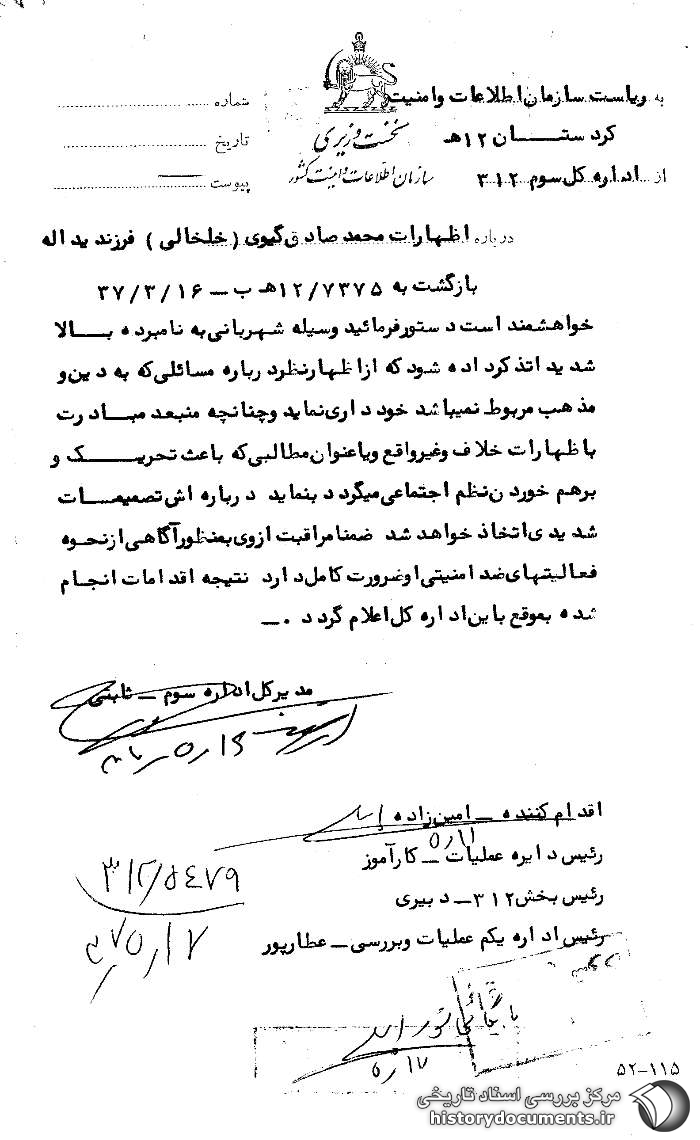 به ریاست سازمان اطلاعات وامنیت
کردستــــان ۱۲هـ
از اداره کل سوم ۳۱۲
نخست وزیری
سازمان اطلاعات و امنیت کشور
شماره
تاریخ
پیوست
درباره اظهارات محمد صادق گیوی (خلخالی) فرزند یداله
بازگشت به ۱۲/۷۳۷۵هـ ب ــ ۳۷/۳/۱۶
خواهشمند است دستورفرمائید وسیله شهربانی به نامبرده بــالا
شدیدا تذکر داده شود که از اظهارنظر درباره مسائلی که به دین و
مذهب مربوط نمیباشد خودداری نماید وچنانچه منبعد مبــادرت
باظهارات خلاف وغیرواقع ویاعنوان مطالبی که باعث تحریـــک و
برهم خوردن نظم اجتماعی میگردد بنماید درباره اش تصمیمــات
شدیدی اتخاذ خواهد شد ضمنا مراقبت ازوی بمنظور آگاهی از نحوه
فعالیتهای ضد امنیتی او ضرورت کامل دارد نتیجه اقدامات انجام
شده بموقع باین اداره کل اعلام گردد .ــ
مدیرکل اداره سوم ــ ثابتی
اقدام کننده ــ امین زاده
رئیس دایره عملیات ــ کارآموز
۱۷ر۵
رئیس بخش ۳۱۲ ــ دبیری
رئیس اداره یکم عملیات وبررسی ــ عطارپور
۳۱۲/۵۴۷۹
۱۷ر۵
۱۷ر۵
۵۲-۱۱۵
مرکز بررسی اسناد تاریخی
historydocuments.ir